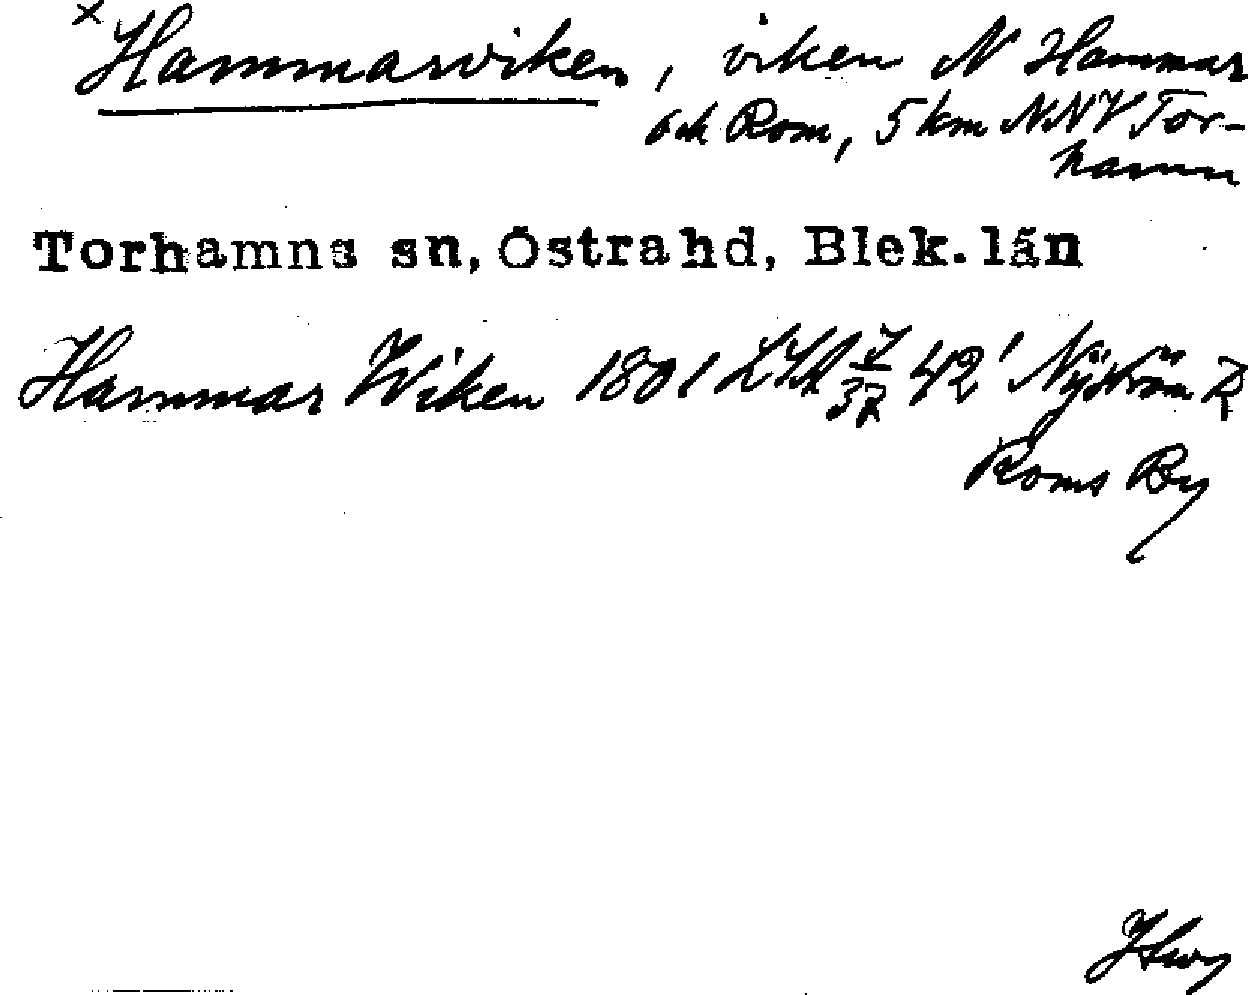 × Hammarviken, viken N Hammar
och Rom, 5 km NNV Tor-
hamn
Torhamns sn, Östra hd, Blek. län
Hammar Wiken 1801 LSA 42' Nyström
Roms By